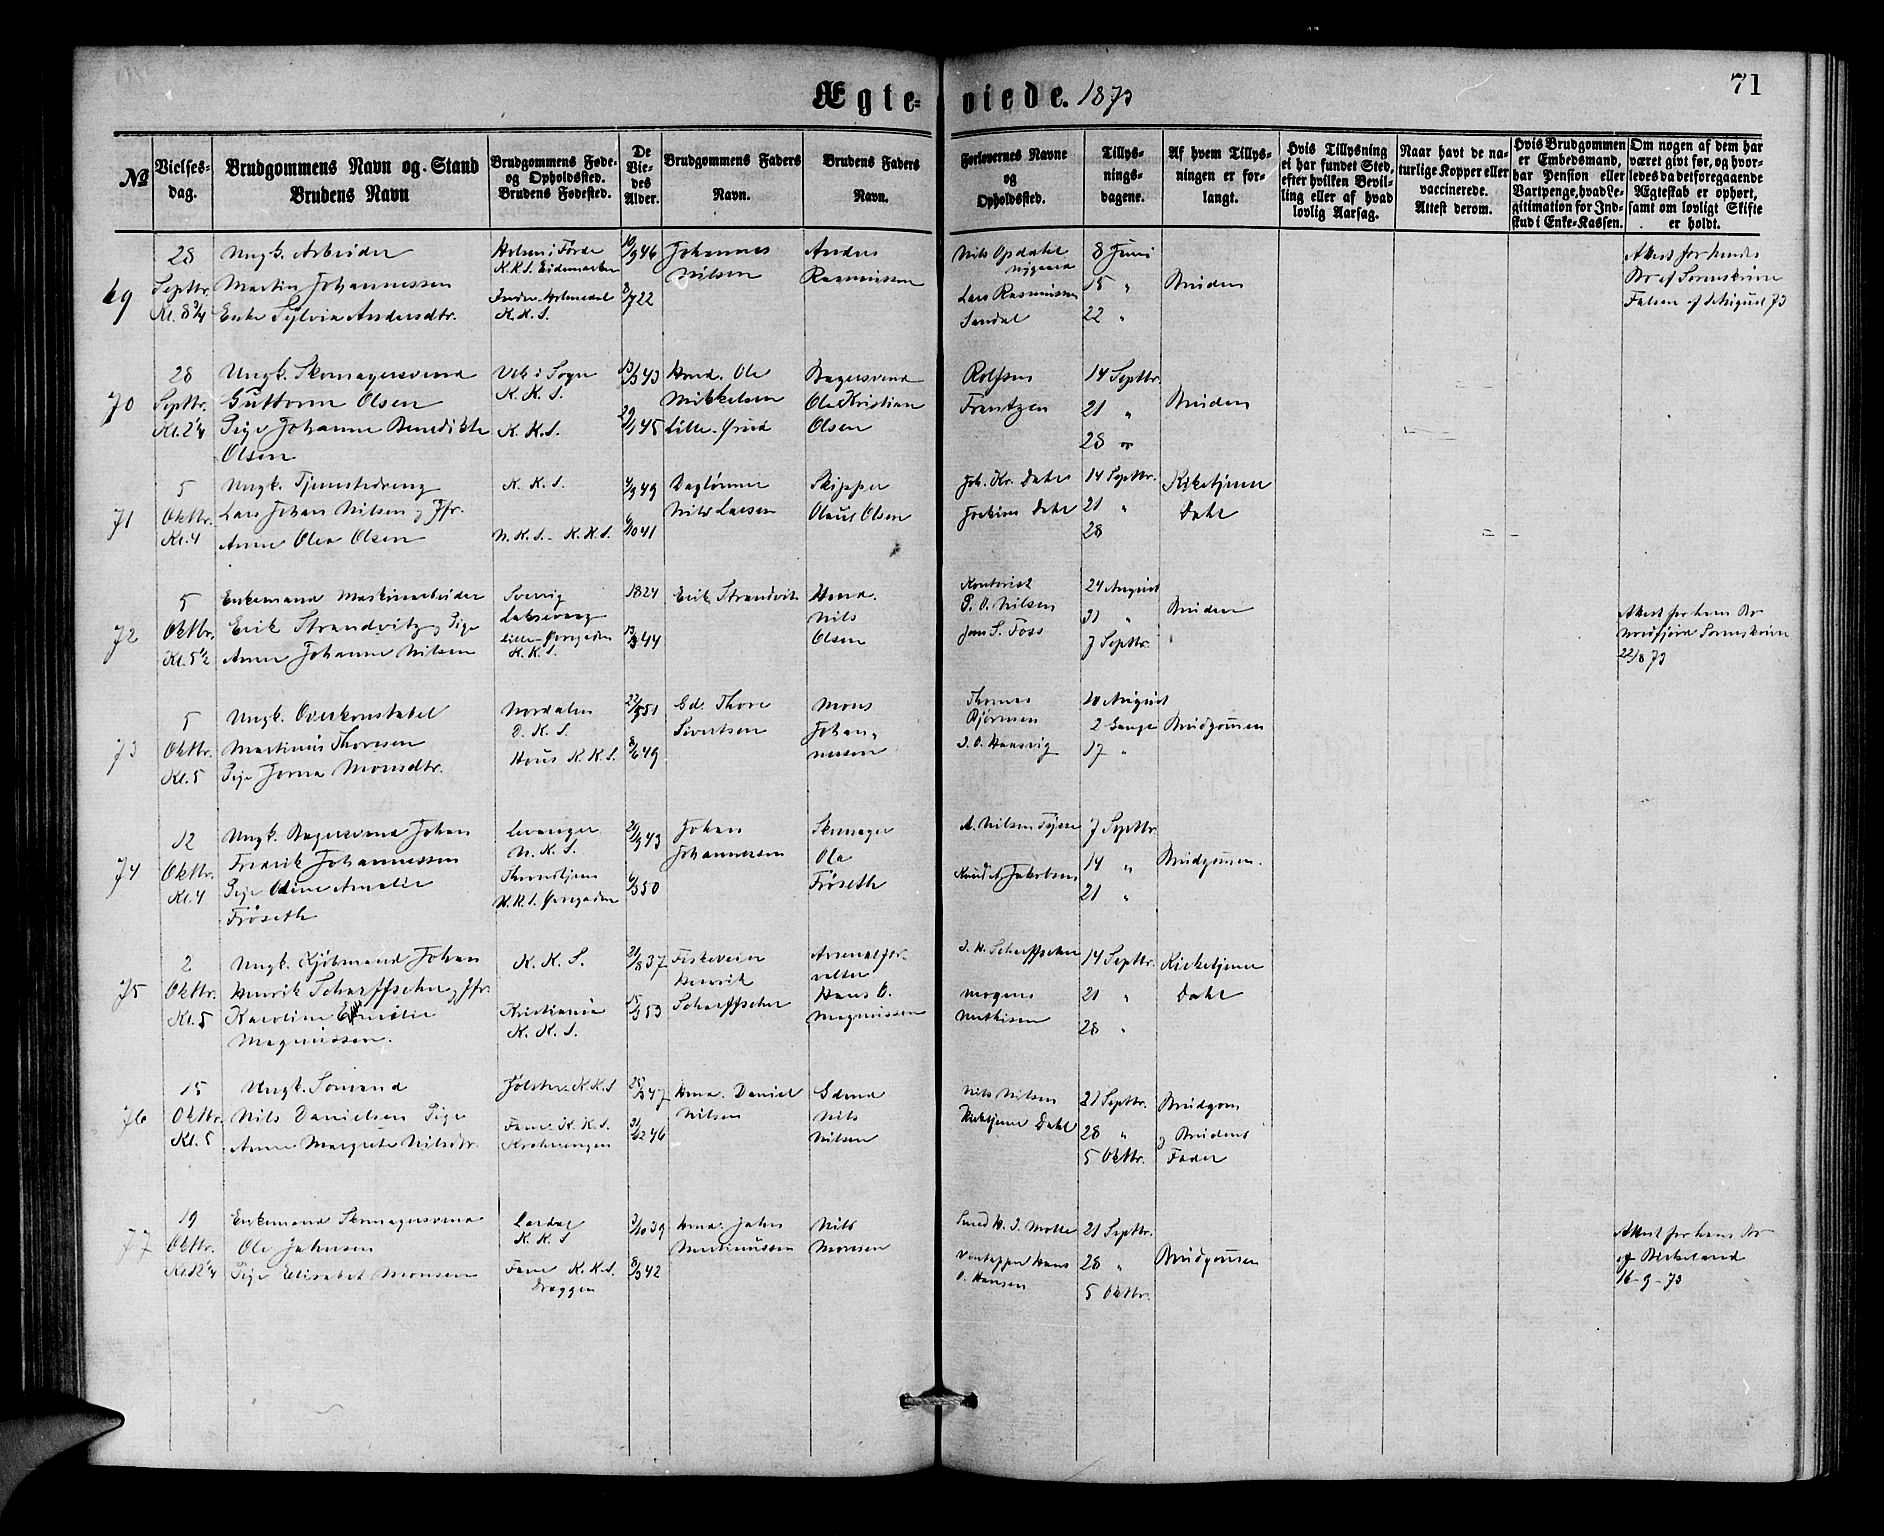 Ægte-viede. 1873
71
№
Vielses-
dag.
Brudgommens Navn og Stand
Brudens Navn
Brudgommens Føde-
og Opholdssted.
Brudens Fødested.
De
Vie-
des
Alder.
Brudgommens Faders
Navn.
Brudens Faders
Navn.
Forlovernes Navne
og
Opholdssted.
Tillys-
nings-
dagene.
Af hvem Tillys-
ningen er for-
langt.
Hvis Tillysning
ei har fundet Sted,
efter hvilken Bevil-
ling eller af hvad
lovlig Aarsag.
Naar havt de na-
turlige Kopper eller
vaccinerede.
Attest derom.
Hvis Brudgommen
er Embedsmand,
har Pension eller
Vartpenge, hvad Le-
gitimation for Ind-
skud i Enke-Kassen.
Om nogen af dem har
været givt før, og hvor-
ledes da det foregaaende
Ægteskab er ophørt,
samt om lovligt Skifte
er holdt.
69
28
Septbr.
Kl. 8 3/4
Ungk. Arbeider
Martin Johannessen
Enke Sylvia Andersdtr.
Holsen i Førde
K.K.S. Eidemarken
Indre Holmedal
K.K.S.
46
22
Johannes
Nilsen
Anders
Rasmussen
Nils Opdahl
Nygaard
Lars Rasmussen
Sandal
8 Juni
15 "
22 "
Bruden
Attest for hendes
70
28
Septbr.
Ungk. Skomagersvend
Guttorm Olsen
Pige Johanne Benedikte
Olsen
Vik i Sogn
K.K.S.
K.K.S.
43
45
Hmd. Ole
Mikkelsen
Bagersvend
Ole Kristian
Olsen
Rolfsen
Frantzen
14 Septbr.
21 "
28 "
Bruden
71
5
Oktbr.
Kl. 4
Ungk. Tjenestedreng
Lars Johan Nilsen og Jfr.
Anne Olea Olsen
K.K.S.
N.K.S. - K.K.S.
49
41
Daglønner
Nils Larsen
Skipper
Olaus Olsen
Joh. Kr. Dahl
Joakim Dahl
14 Septbr.
21 "
28
Kirketjener
Dahl
72
5
Oktbr.
Kl. 5 1/2
Enkemand Maskinarbeider
Erik Strandvitz og Pige
Anne Johanne Nilsen
Sverig
Laksevaag
Lille-Øvregaden
K.K.S.
1824
44
Erik Strandvitz
Hmd.
Nils
Olsen
Kontorist
P. O. Nilsen
Jens S. Foss
24 August
31 "
7 Septbr.
Bruden
22/8 73
73
5
Oktbr.
Kl. 5
Ungk. Overkonstabel
Martinus Thoresen
Pige Jorna Monsdtr.
Nordalen
D.K.S.
Hous K.K.S.
51
49
Gd. Thore
Sivertsen
Mons
Johan-
nessen
Thomas
Bjørnsen
10 August
2 Gange
17 "
Brudgommen
74
12
Oktbr.
Kl. 4
Ungk. Bagersvend Johan
Fredrik Johannessen
Pige Oline Amalie
Frøseth
Levanger
N.K.S.
Throndhjem
N.K.S. Øvregaden
43
50
Johan
Johannessen
Skomager
Ole
Frøseth
7 Septbr.
14 "
21 "
Brudgommen.
75
2
Oktbr.
Kl. 5
Ungk. Kjøbmand Johan
Henrik Scharffscher og Jfr.
Karoline Emilie
Magnussen.
K.K.S.
Kristiania
K.K.S.
37
53
Fiskeveier
Henrik
Scharffscher
Arsenalfor-
valter
Hans O.
Magnussen
J. H. Scharffscher
Mogens
Mathisen
14 Septbr.
21 "
28 "
Kirketjener
Dahl
76
15
Oktbr.
Kl. 5
Ungk. Sømand
Nils Danielsen Pige
Anne Margrete Nilsdtr.
Jølster K.K.S
Fane K.K.S.
Krohnengen
47
46
Hmd. Daniel
Nilsen
Gdmd
Nils
Nilsen
Nils Nilsen
Kirketjener Dahl
21 Septbr.
28 "
5 Oktbr.
Brudgom
og Brudens
Fader
77
19
Oktbr.
Enkemand Skomagersvend
Ole Johnsen
Pige Elisabet Monsen
Lærdal
K.K.S
Fane K.K.S.
Dræggen
39
42
Hmd. John
Martinussen
Nils
Monsen
Smed H. J. Motte
O. Hansen
21 Septbr.
28 "
5 Oktbr.
Brudgommen
Attest for hans Br
af Birkeland
16-9-73